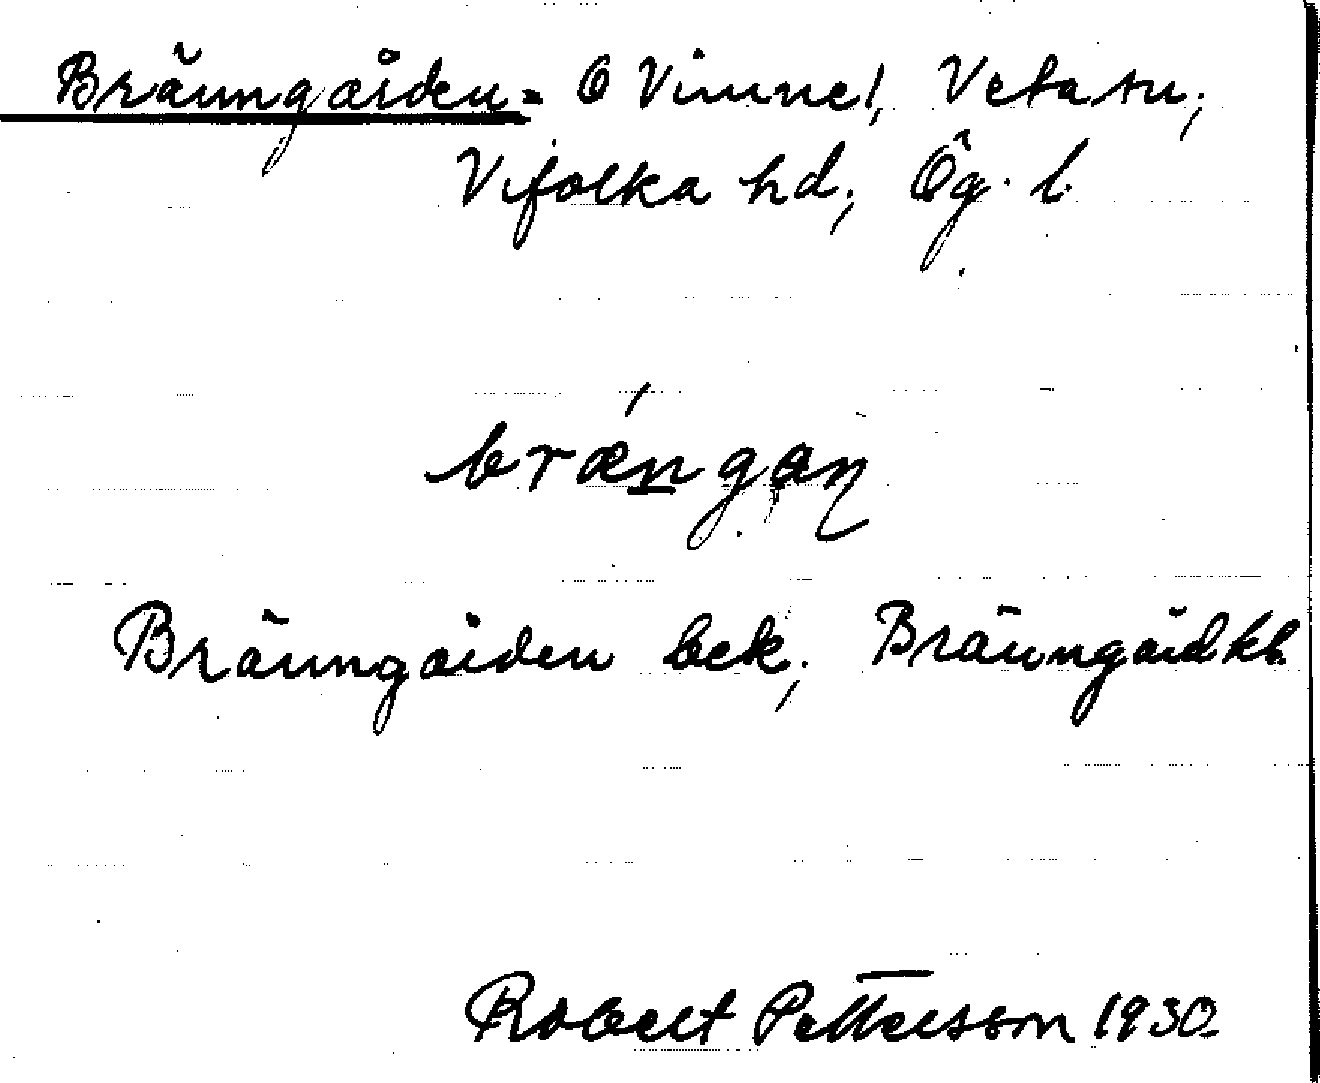 Bränngården = Ö Vimne!, Veta sn;
Vifolka hd; Ög. l.
brǽn̲gaɳ
Bränngården bek; Bränngård kb.
Robert Pettersson 1930